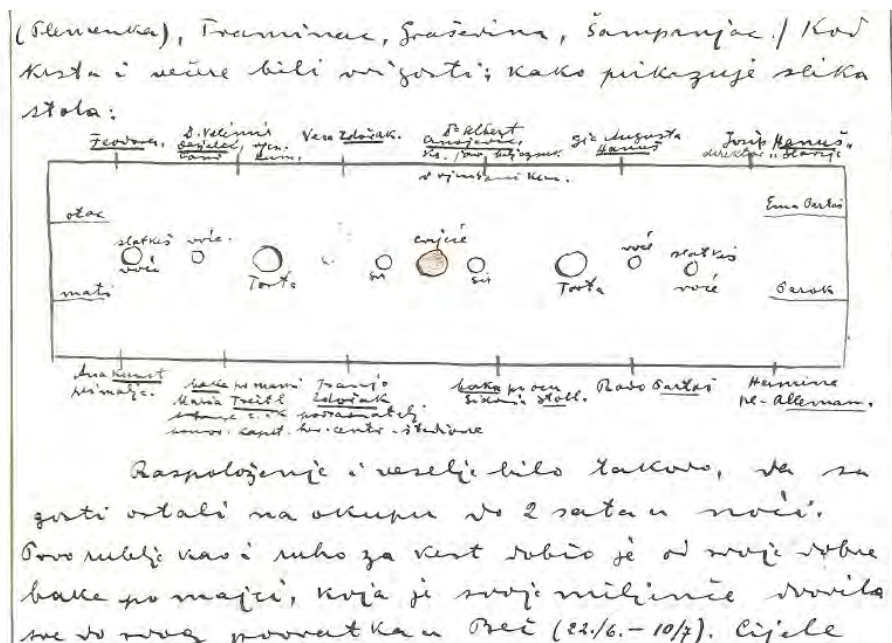 (Plemenka), Traminac, Graševina, Šampanjac./ Kod
krsta i večere bili ovi gosti; kako prikazuje slika
stola:
Feodora.
D. Velimir
Vera Zdořak.
Dr Albert
gđa Augusta
Hanuš
Josip Hanuš.
direktor
otac
Ema Bartoš
slatkiš
voće
voće.
Torta
sir
cvijeće
sir
Torta
voće
slatkiš
voće
mati
Barok
Ana Kunst
primalja.
baka po mami
Maria Treitl
Franjo
Zdořak
baka po ocu
Sidonia Stoll.
Rado Bartoš
Hermine
pl. Alleman.
Raspoloženje i veselje bilo takovo, da su
gosti ostali na okupu do 2 sata u noći.
Prvo rublje kao i ruho za krst dobio je od svoje dobre
bake po majci, koja je svoje miljenče dvorila
sve do svog povratka u Beč (22./6. – 10/7). Cijele